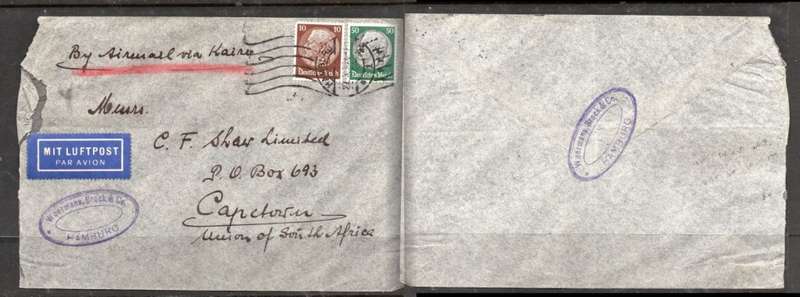 By Airmail via Kairo
10 10
Deutsches Reich
50 50
Deutsches Reich
Messrs.
C. F. Shaw Limited
P. O. Box 693
Capetown
Union of South Africa
MIT LUFTPOST
PAR AVION
Woermann, Brock & Co.
HAMBURG
Woermann, Brock & Co.
HAMBURG